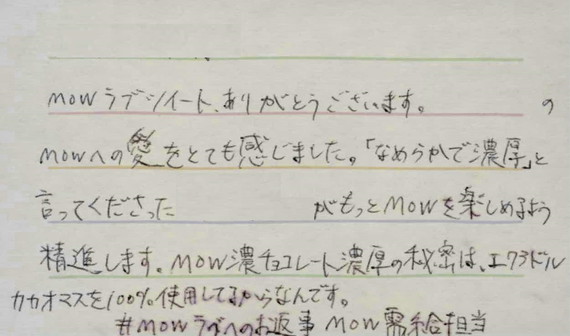 MOWラブツイート、ありがとうございます。 の
MOWへの愛をとても感じました。「なめらかで濃厚」と
言ってくださった がもっとMOWを楽しめるよう
精進します。MOW濃チョコレート濃厚の秘密は、エクアドル
カカオマスを100%使用してるからなんです。
#MOWラブへのお返事 MOW需給担当